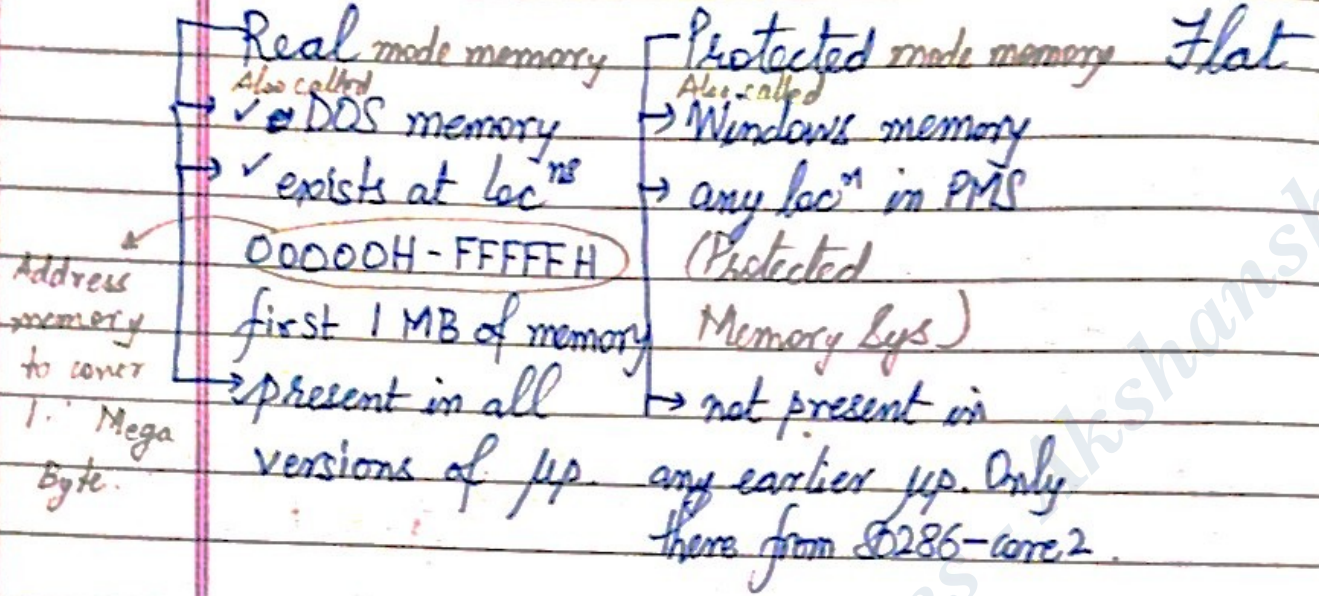 Real mode memory
Also called
✓ DOS memory
✓ exists at locⁿˢ
00000H - FFFFFH
first 1 MB of memory
present in all
versions of μp.
Address
memory
to cover
1. Mega
Byte.
Protected mode memory
Also called
Windows memory
any locⁿ in PMS
(Protected
Memory Sys)
not present in
any earlier μp. Only
there from 80286-core 2.
Flat
Akshansh